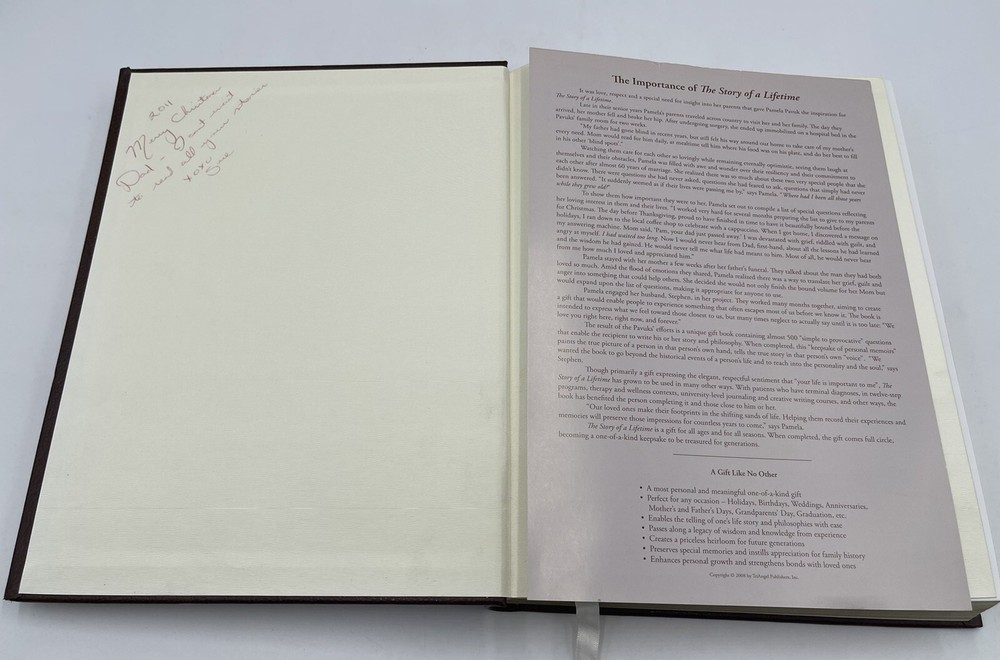 2011
Merry Christmas
Dad - I can't wait
to read all your stories
xoxo
Sue
The Importance of The Story of a Lifetime
It was love, respect and a special need for insight into her parents that gave Pamela Pavuk the inspiration for
The Story of a Lifetime.
Late in their senior years Pamela's parents traveled across country to visit her and her family. The day they
arrived, her mother fell and broke her hip. After undergoing surgery, she ended up immobilized on a hospital bed in the
Pavuks' family room for two weeks.
"My father had gone blind in recent years, but still felt his way around our home to take care of my mother's
every need. Mom would read for him daily, at mealtime tell him where his food was on his plate, and do her best to fill
in his other 'blind spots'."
Watching them care for each other so lovingly while remaining eternally optimistic, seeing them laugh at
themselves and their obstacles, Pamela was filled with awe and wonder over their resiliency and their commitment to
each other after almost 60 years of marriage. She realized there was so much about these two very special people that she
didn't know. There were questions she had never asked, questions she had feared to ask, questions that simply had never
been answered. "It suddenly seemed as if their lives were passing me by," says Pamela. "Where had I been all these years
while they grew old?"
To show them how important they were to her, Pamela set out to compile a list of special questions reflecting
her loving interest in them and their lives. "I worked very hard for several months preparing the list to give to my parents
for Christmas. The day before Thanksgiving, proud to have finished in time to have it beautifully bound before the
holidays, I ran down to the local coffee shop to celebrate with a cappuccino. When I got home, I discovered a message on
my answering machine. Mom said, 'Pam, your dad just passed away.' I was devastated with grief, riddled with guilt, and
angry at myself. I had waited too long. Now I would never hear from Dad, first-hand, about all the lessons he had learned
and the wisdom he had gained. He would never tell me what life had meant to him. Most of all, he would never hear
from me how much I loved and appreciated him."
Pamela stayed with her mother a few weeks after her father's funeral. They talked about the man they had both
loved so much. Amid the flood of emotions they shared, Pamela realized there was a way to translate her grief, guilt and
anger into something that could help others. She decided she would not only finish the bound volume for her Mom but
would expand upon the list of questions, making it appropriate for anyone to use.
Pamela engaged her husband, Stephen, in her project. They worked many months together, aiming to create
a gift that would enable people to experience something that often escapes most of us before we know it. The book is
intended to express what we feel toward those closest to us, but many times neglect to actually say until it is too late: "We
love you right here, right now, and forever."
The result of the Pavuks' efforts is a unique gift book containing almost 500 "simple to provocative" questions
that enable the recipient to write his or her story and philosophy. When completed, this "keepsake of personal memoirs"
paints the true picture of a person in that person's own hand, tells the true story in that person's own "voice". "We
wanted the book to go beyond the historical events of a person's life and to reach into the personality and the soul," says
Stephen.
Though primarily a gift expressing the elegant, respectful sentiment that "your life is important to me", The
Story of a Lifetime has grown to be used in many other ways. With patients who have terminal diagnoses, in twelve-step
programs, therapy and wellness contexts, university-level journaling and creative writing courses, and other ways, the
book has benefited the person completing it and those close to him or her.
"Our loved ones make their footprints in the shifting sands of life. Helping them record their experiences and
memories will preserve those impressions for countless years to come," says Pamela.
The Story of a Lifetime is a gift for all ages and for all seasons. When completed, the gift comes full circle,
becoming a one-of-a-kind keepsake to be treasured for generations.
A Gift Like No Other
• A most personal and meaningful one-of-a-kind gift
• Perfect for any occasion – Holidays, Birthdays, Weddings, Anniversaries,
Mother's and Father's Days, Grandparents' Day, Graduation, etc.
• Enables the telling of one's life story and philosophies with ease
• Passes along a legacy of wisdom and knowledge from experience
• Creates a priceless heirloom for future generations
• Preserves special memories and instills appreciation for family history
• Enhances personal growth and strengthens bonds with loved ones
Copyright © 2008 by TriAngel Publishers, Inc.